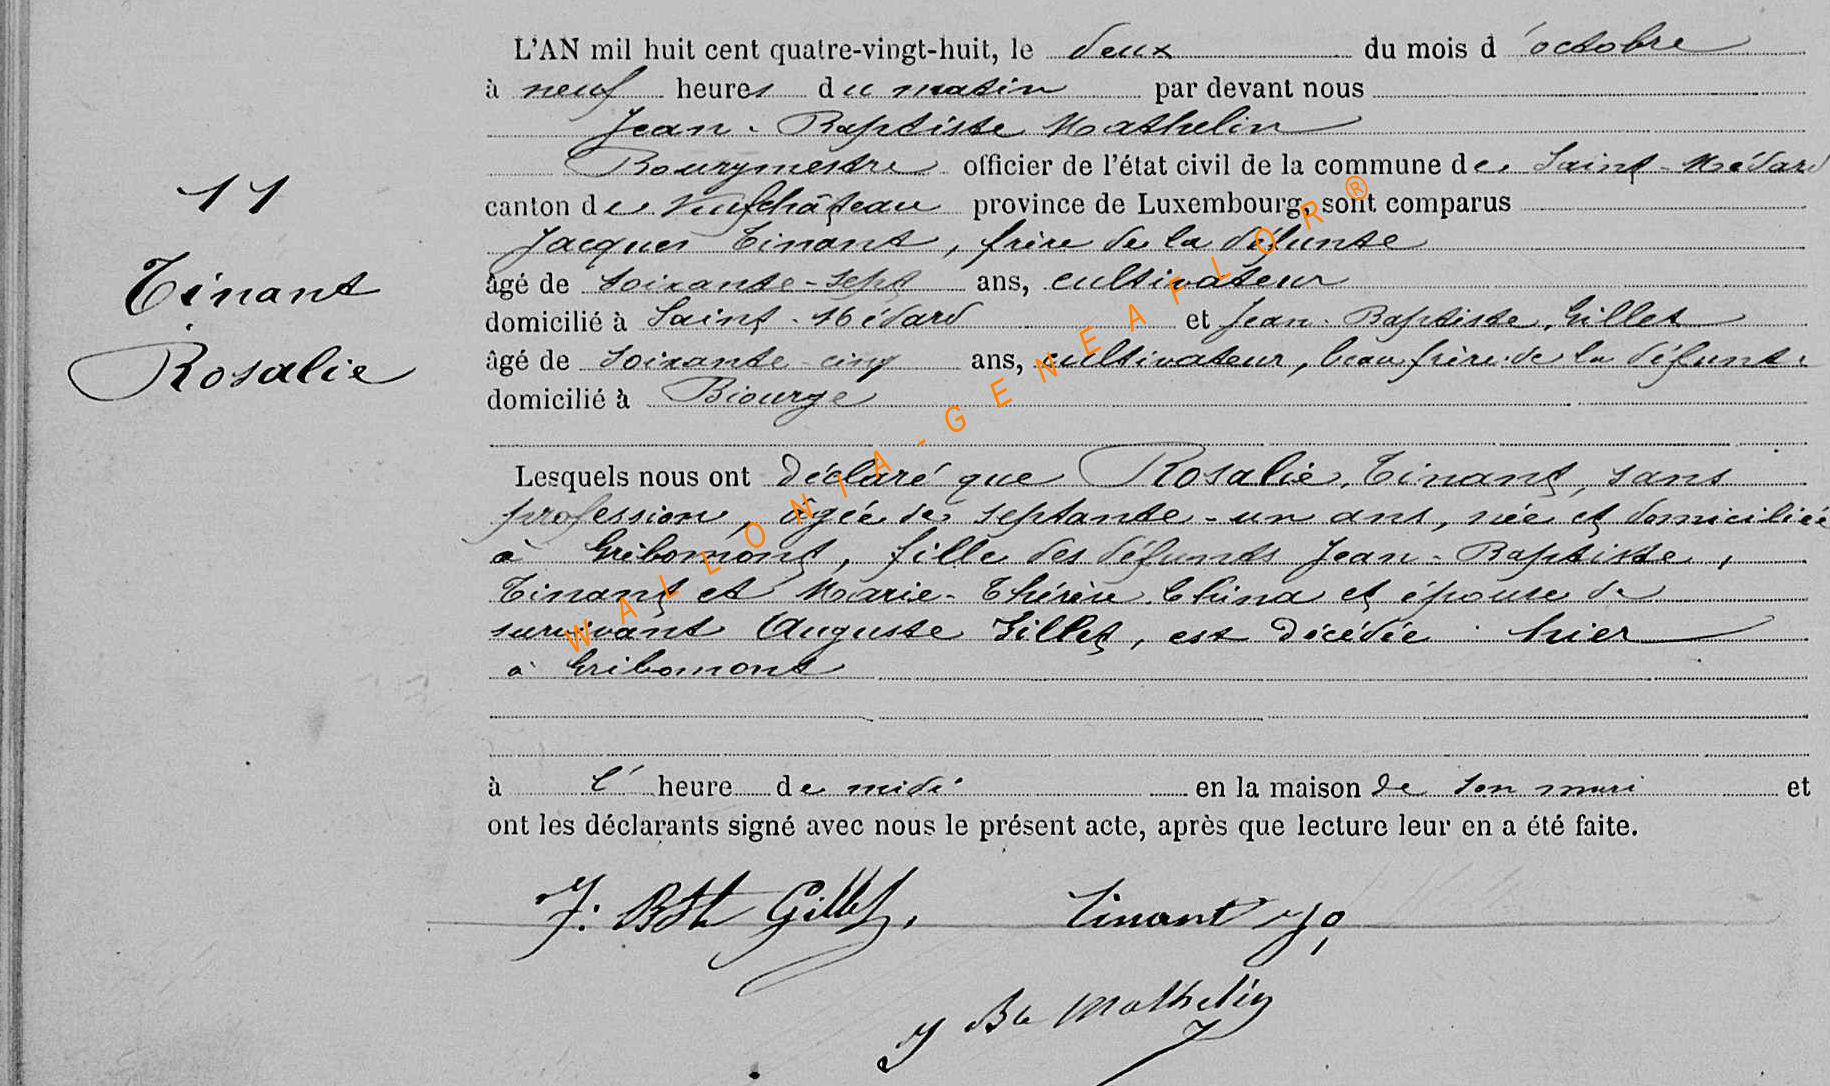 L'AN mil huit cent quatre-vingt-huit, le deux du mois d'octobre
à neuf heures du matin par devant nous
Jean-Baptiste Mathelin
Bourgmestre officier de l'état civil de la commune de Saint-Médard
canton de Neufchâteau province de Luxembourg, sont comparus
Jacques Tinant, frère de la défunte
âgé de soixante-sept ans, cultivateur
domicilié à Saint-Médard et Jean-Baptiste Gillet
âgé de soixante-cinq ans, cultivateur, beau frère de la défunte
domicilié à Biourge
11
Tinant
Rosalie
Lesquels nous ont déclaré que Rosalie Tinant, sans
profession, âgée de septante-un ans, née et domiciliée
à Gribomont, fille des défunts Jean-Baptiste,
Tinant et Marie-Thérèse China et épouse de
survivant Auguste Gillet, est décédée hier
à Gribomont
à l'heure de midi en la maison de son mari et
ont les déclarants signé avec nous le présent acte, après que lecture leur en a été faite.
J. Bte Gillet, Tinant Jq
J Bte Mathelin
WALLONIA-GENEAFLOR®